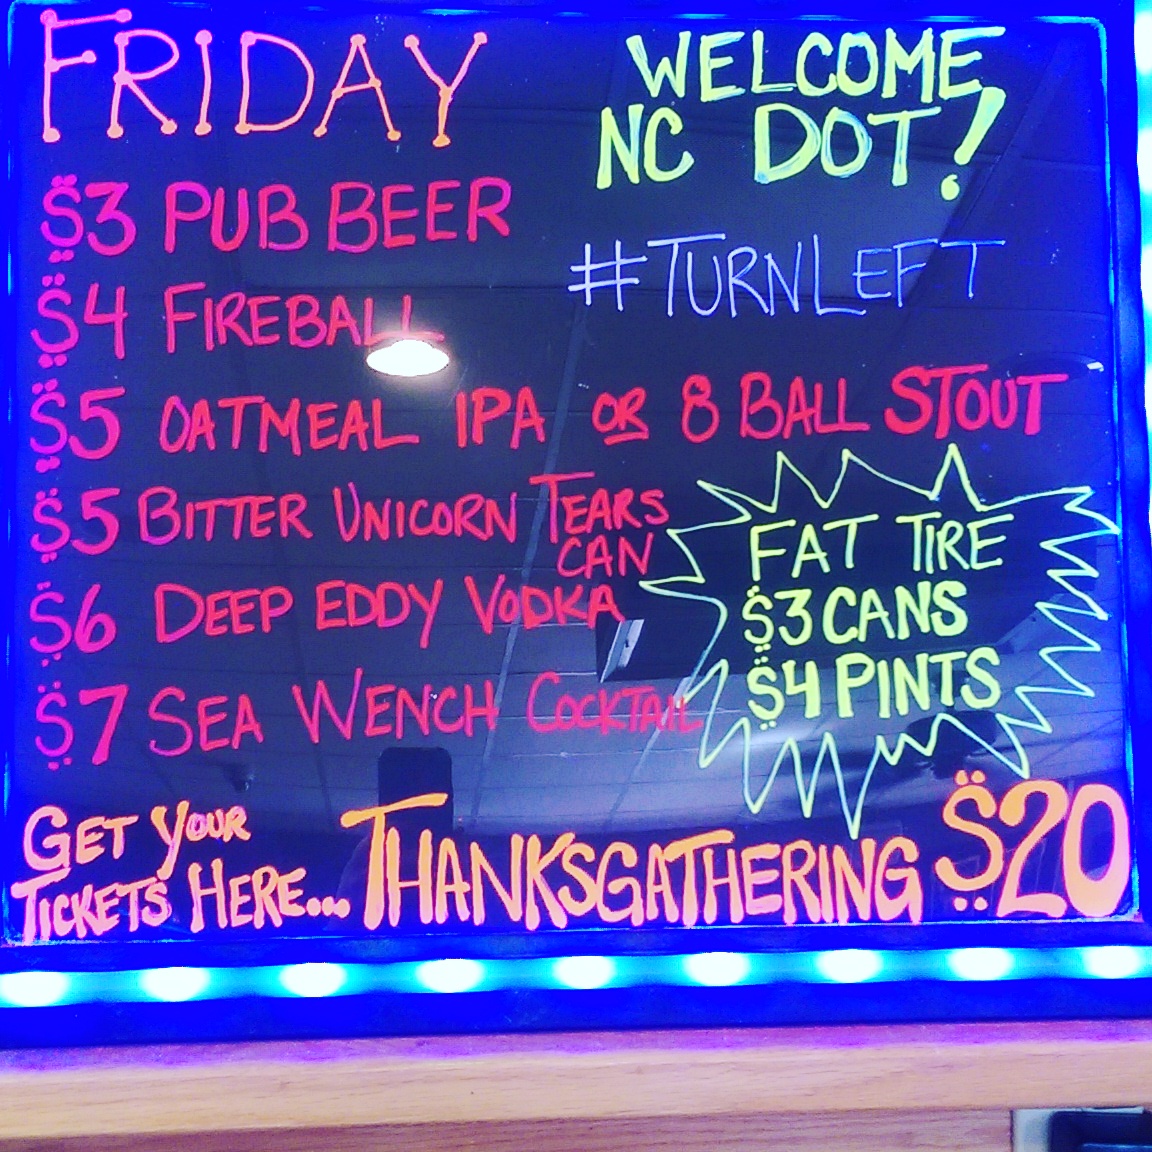 FRIDAY
WELCOME
NC DOT!
#TURNLEFT
$3 PUB BEER
$4 FIREBALL
$5 OATMEAL IPA OR 8 BALL STOUT
$5 BITTER UNICORN TEARS
CAN
$6 DEEP EDDY VODKA
$7 SEA WENCH COCKTAIL
FAT TIRE
$3 CANS
$4 PINTS
GET YOUR
TICKETS HERE... THANKSGATHERING $20